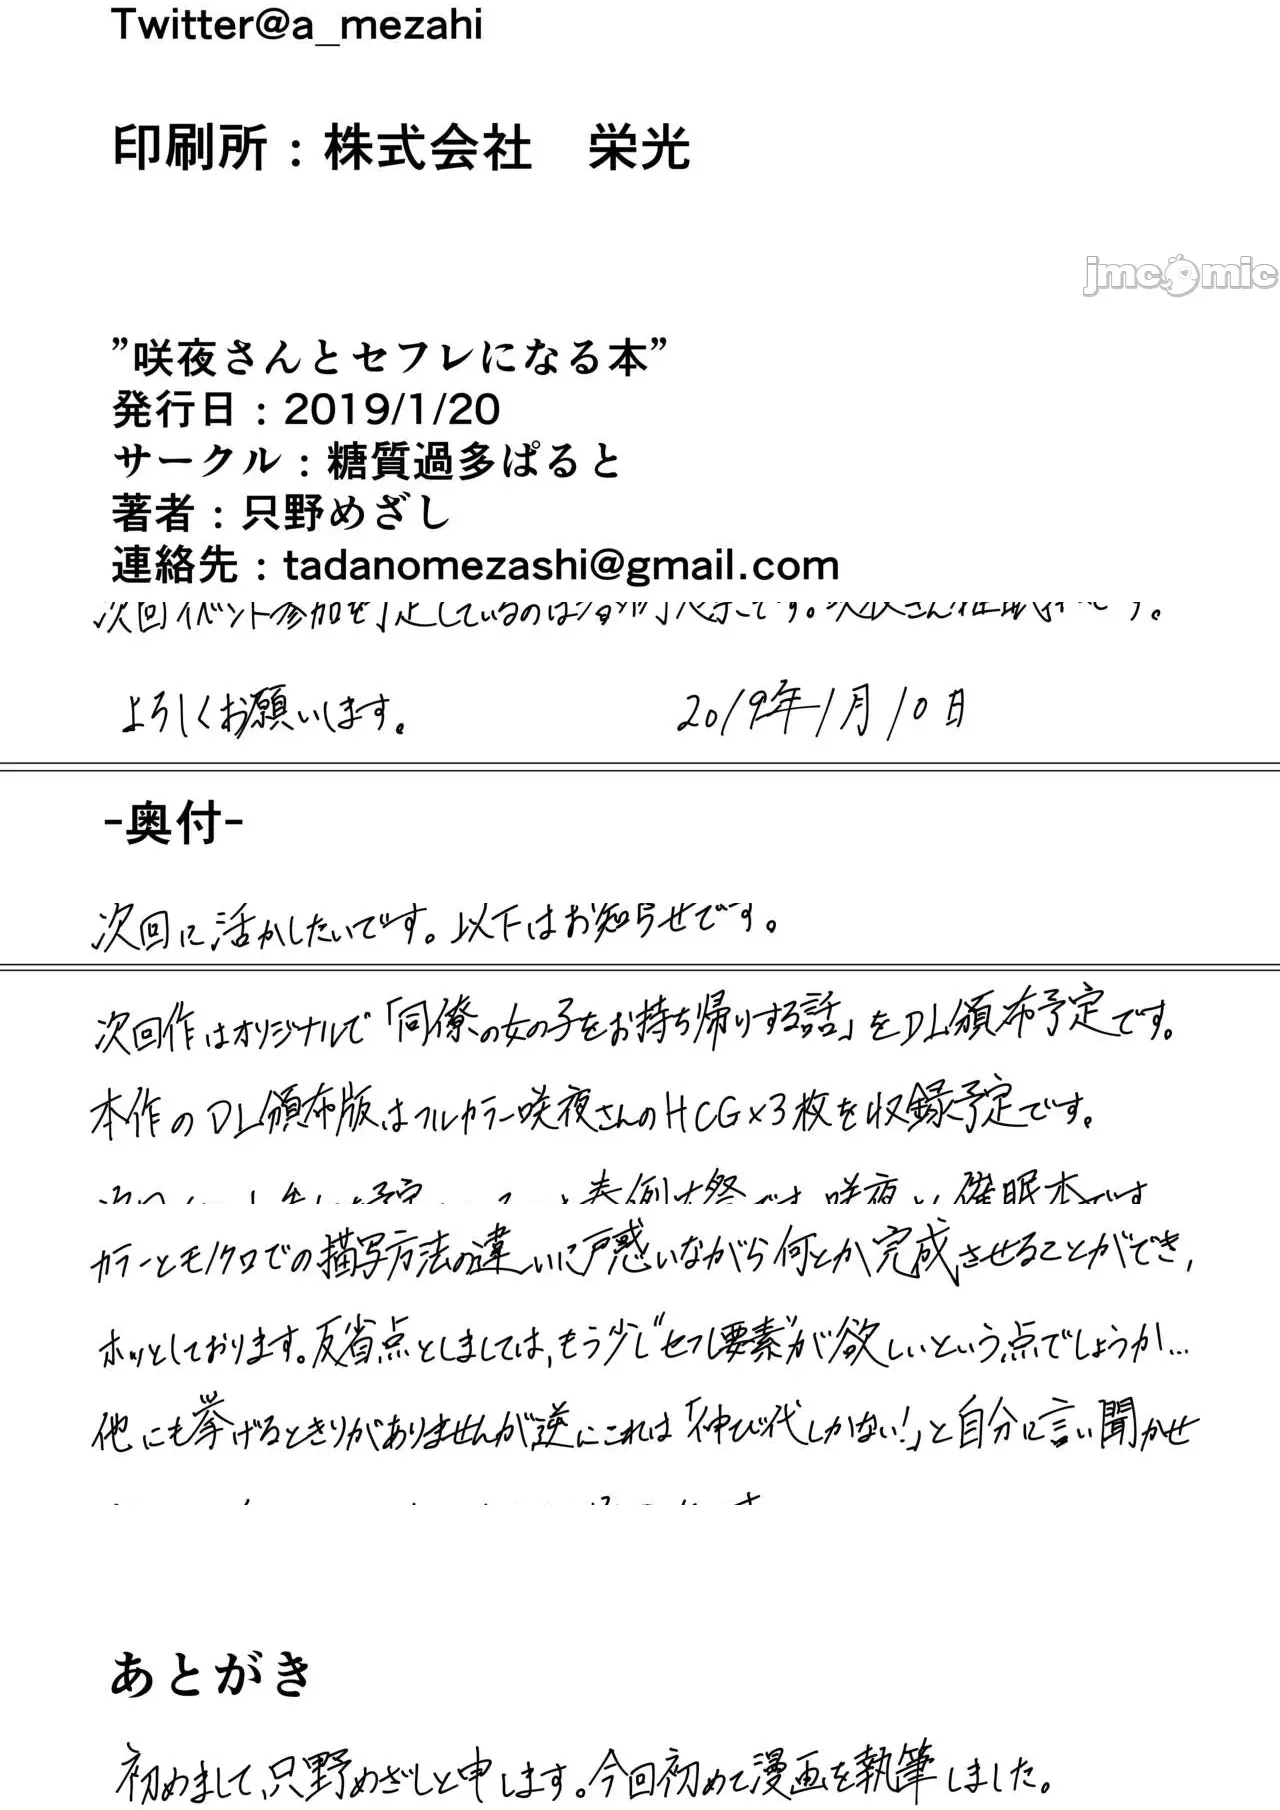 Twitter@a_mezahi
印刷所：株式会社　栄光
jmcomic
”咲夜さんとセフレになる本”
発行日：2019/1/20
サークル：糖質過多ぱると
著者：只野めざし
連絡先：tadanomezashi@gmail.com
次回イベント参加を予定しているのは
よろしくお願いします。　2019年1月10日
-奥付-
次回に活かしたいです。以下はお知らせです。
次回作はオリジナルで「同僚の女の子をお持ち帰りする話」をDL頒布予定です。
本作のDL頒布版はフルカラー咲夜さんのHCG×3枚を収録予定です。
カラーとモノクロでの描写方法の違いに戸惑いながら何とか完成させることができ,
ホッとしております。反省点としましては、もう少し"セフレ要素"が欲しいという点でしょうか...
他にも挙げるときりがありませんが逆にこれは「伸び代しかない!」と自分に言い聞かせ
あとがき
初めまして、只野めざしと申します。今回初めて漫画を執筆しました。